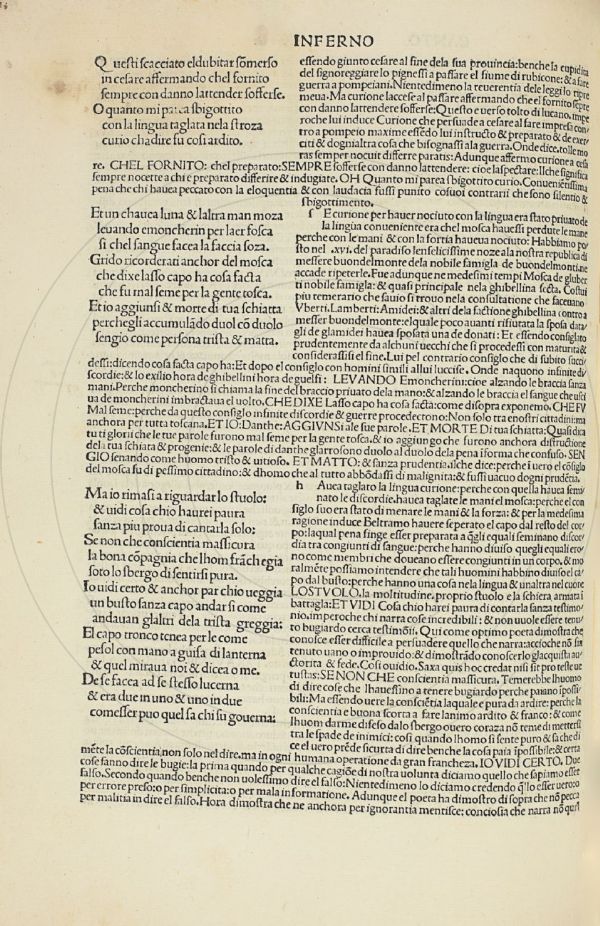 INFERNO
Questi scacciato eldubitar somerso
in cesare affermando chel fornito
sempre con danno lattender sofferse.
O quanto mi parea sbigottito
con la lingua taglata nella stroza
curio cha dire fu cosi ardito.
essendo giunto cesare al fine dela sua prouincia: benche la cupidita
del signoreggiare lo pignessi a passare el fiume di rubicone: & a fare
guerra a pompeiani. Nientedimeno la reuerentia dele leggi lo
meua. Ma curione laccese al passare affermando che el fornito sēpre
con danno lattendere sofferse: Questo e uerso tolto di lucano,
roche lui induce Curione che persuade a cesare al fare impresa con
tro a pompeio maxime essēdo lui instructo & preparato & de exer
citi & dognialtra cosa che bisognassi ala guerra. Onde dice. tolle mo
ras semper nocuit differre paratis: Adunque affermo curione a cesa
re. CHEL FORNITO: chel preparato: SEMPRE sofferse con danno lattendere: cioe laspectare: Ilche significa
sempre nocette a chi e preparato differire & indugiare. OH Quanto mi parea sbigottito curio. Conueniētissima
pena che chi hauea peccato con la eloquentia & con laudacia fussi punito cosuoi contrarii che sono silentio &
sbigottimento.
Et un chauea luna & laltra man moza
leuando emoncherin per laer fosca
si chel sangue facea la faccia soza.
Grido ricorderati anchor del mosca
che dixe lasso capo ha cosa facta
che fu mal seme per la gente tosca.
Et io aggiunsi & morte di tua schiatta
perchegli accumulādo duol cō duolo
sengio come persona trista & matta.
f E curione per hauer nociuto con la lingua era stato priuato de
la lingua conueniente era chel mosca hauessi perdute le mane
perche con le mani & con la fortia haueua nociuto: Habbiamo po
sto nel .xvi. del paradiso lenfelicissime noze ala nostra republica di
messere buondelmonte dela nobile famigla de buondelmonti ne
accade ripeterle. Fue adunque ne medesimi tempi Mosca de gluber
ti nobile famigla: & quasi principale nela ghibellina secta. Costui
piu temerario che sauio si trouo nela consultatione che faceuano
Vberti. Lamberti: Amidei: & altri dela factione ghibellina contro a
messer buondelmonte: elquale poco auanti rifiutata la sposa data
gli de glamidei haueua sposata una de donati: Et essendo consiglato
prudentemente da alchuni uecchi che si procedessi con maturita &
considerassisi el fine. Lui pel contrario consiglo che di subito succi
dessi: dicendo cosa facta capo ha: Et dopo el consiglo con homini simili allui luccise. Onde naquono infinite di
scordie: & lo exilio hora de ghibellini hora de guelfi: LEVANDO Emoncherini: cioe alzando le braccia sanza
mani. Perche moncherino si chiama la fine del braccio priuato dela mano: & alzando le braccia el sangue che usci
ua de moncherini imbractaua el uolto. CHE DIXE Lasso capo ha cosa facta: come disopra exponemo. CHE FV
Mal seme: perche da questo consiglo infinite discordie & guerre procedectono: Non solo tra enostri cittadini: ma
anchora per tutta toscana. ET IO: Danthe: AGGIVNSI ale sue parole. ET MORTE Di tua schiatta: Quasi dica
tu ti glorii che le tue parole furono mal seme per la gente tosca. & io aggiungo che furono anchora distructione
dela tua schiata & progenie: & le parole di danthe glarrosono duolo al duolo dela pena i forma che confuso. SEN
GIO senando come huomo tristo & uitioso. ET MATTO: & sanza prudentia. ilche dice: perche ī uero el cōsiglo
del mosca fu di pessimo cittadino: & dhomo che al tutto abbōdassi di malignita: & fussi uacuo dogni prudētia.
Ma io rimasi a riguardar lo stuolo:
& uidi cosa chio haurei paura
sanza piu proua di cantarla solo:
Se non che conscientia massicura
la bona cōpagnia che lhom frāchegia
soto lo sbergo di sentirsi pura.
Io uidi certo & anchor par chio ueggia
un busto sanza capo andar si come
andauan glaltri dela trista greggia:
El capo tronco tenea per le come
pesol con mano a guisa di lanterna
& quel miraua noi & dicea o me.
De se facea ad se stesso lucerna
& era due in uno & uno in due
comesser puo quel sa chi su gouerna:
h Auea taglato la lingua a curione: perche con quella hauea semi
nato le discordie. hauea taglate le mani el mosca: perche el con
siglo suo era stato di menare le mani & la forza: & per la medesima
ragione induce Beltramo hauere seperato el capo dal resto del cor
po: laqual pena singe esser preparata a q̄gli equali seminano discor
dia tra congiunti di sangue: perche hanno diuiso quegli equali ero
no come membri che doueano essere congiunti in un corpo. & mo
ralmēte possiamo intendere che tali huomini habbino diuiso el ca
po dal busto: perche hanno una cosa nela lingua & unaltra nel cuore
LO STVOLO. la moltitudine. proprio stuolo e la schiera armata ī
battagla: ET VIDI Cosa chio harei paura di contarla sanza testimo
nio. imperoche chi narra cose incredibili: & non uuole essere tenu
to bugiardo cerca testimōii. Qui come optimo poeta dimostra che
conosce esser difficile a persuadere quello che narra: accioche nō sia
tenuto uano o improuido: & dimostrādo conoscerlo glacquista au
ctorita & fede. Cosi ouidio. Saxa quis hoc credat nisi sit pro teste ue
tustas: SE NON CHE conscientia massicura. Temerebbe lhuomo
di dire cose che lhauessino a tenere bugiardo perche paiano īpossi
bili: Ma essendo uere la consciētia laquale e pura da ardire: perche la
conscientia e buona scorta a fare lanimo ardito & franco: & come
lhuom darme difeso dalo sbergo ouero coraza nō teme di mettersi
tra le spade de inimici: cosi quando lhomo si sente puro & sa che di
ce el uero prēde sicurta di dire benche la cosa paia īpossibile: & certa
mēte la cōscientia, non solo nel dire. ma in ogni humana operatione da gran francheza. IO VIDI CERTO. Due
cose fanno dire le bugie: la prima quando per qualche cagiōe di nostra uolunta diciamo quello che sapiamo esser
falso. Secondo quando benche non uolessimo dire el falso: Nientedimeno lo diciamo credendo q̄llo esser uero: o
per errore preso: o per simplicita: o per mala informatione. Adunque el poeta ha dimostro di sopra che nō pecca
per malitia in dire el falso. Hora dimostra che ne anchora per ignorantia mentisce: conciosia che narra nō